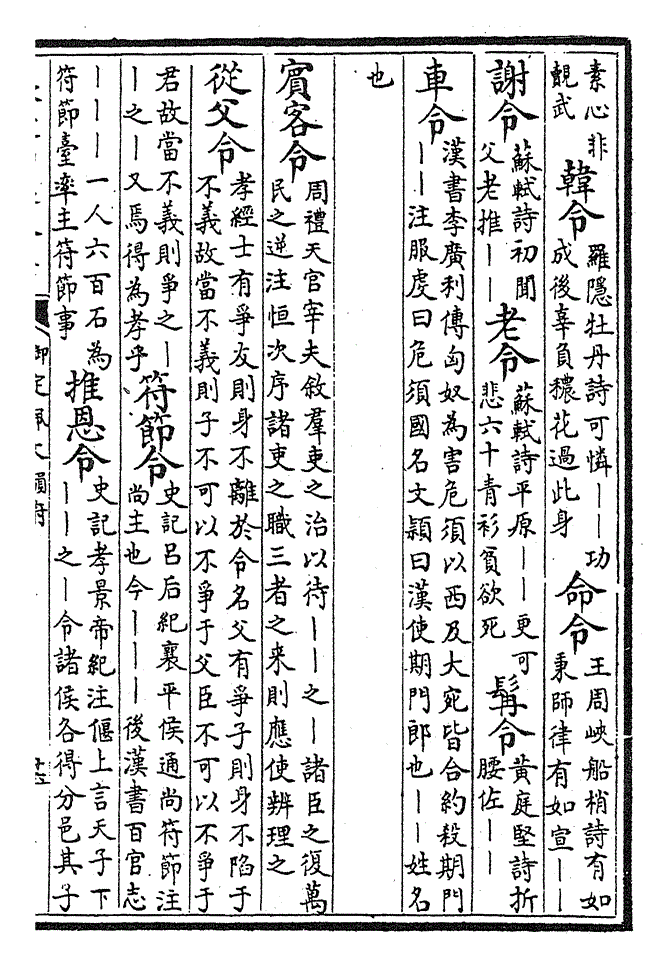 素心非
覩武
韓令
羅隱牡丹詩可憐——功
成後辜負穠花過此身
命令
王周峽船梢詩有如
秉師律有如宣——
謝令
蘇軾詩初聞
父老推——
老令
蘇軾詩平原——更可
悲六十青衫貧欲死
髯令
黃庭堅詩折
腰佐——
車令
漢書李廣利傳匈奴為害危須以西及大宛皆合約殺期門
——注服虔曰危須國名文穎曰漢使期門郎也——姓名
也
賓客令
周禮天官宰夫敘羣吏之治以待——之—諸臣之復萬
民之逆注恒次序諸吏之職三者之来則應使辨理之
從父令
孝經士有爭友則身不離於令名父有爭子則身不陷于
不義故當不義則子不可以不爭于父臣不可以不爭于
君故當不義則爭之—
—之—又焉得為孝乎
符節令
史記呂后紀襄平侯通尚符節注
尚主也今———後漢書百官志
———一人六百石為
符節臺率主符節事
推恩令
史記孝景帝紀注偃上言天子下
——之—令諸侯各得分邑其子
御定佩文韻府